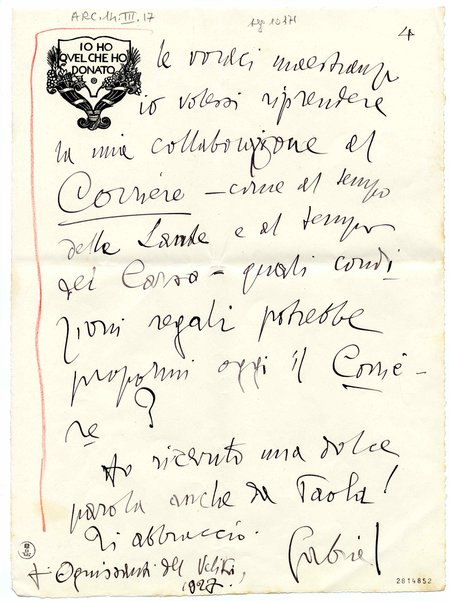 ARC. 14. III. 17
4
IO HO
QVEL CHE HO
DONATO
le voraci maestranze
io volessi riprendere
la mia collaborazione al
Corriere – come al tempo
delle Laude e al tempo
del Carso – quali condi
zioni regali potrebbe
propormi oggi il Corriè-
re ?
Ho ricevuto una dolce
parola anche da Paola!
Ti abbraccio.
Gabriel
Ognissanti del
1927.
2814852